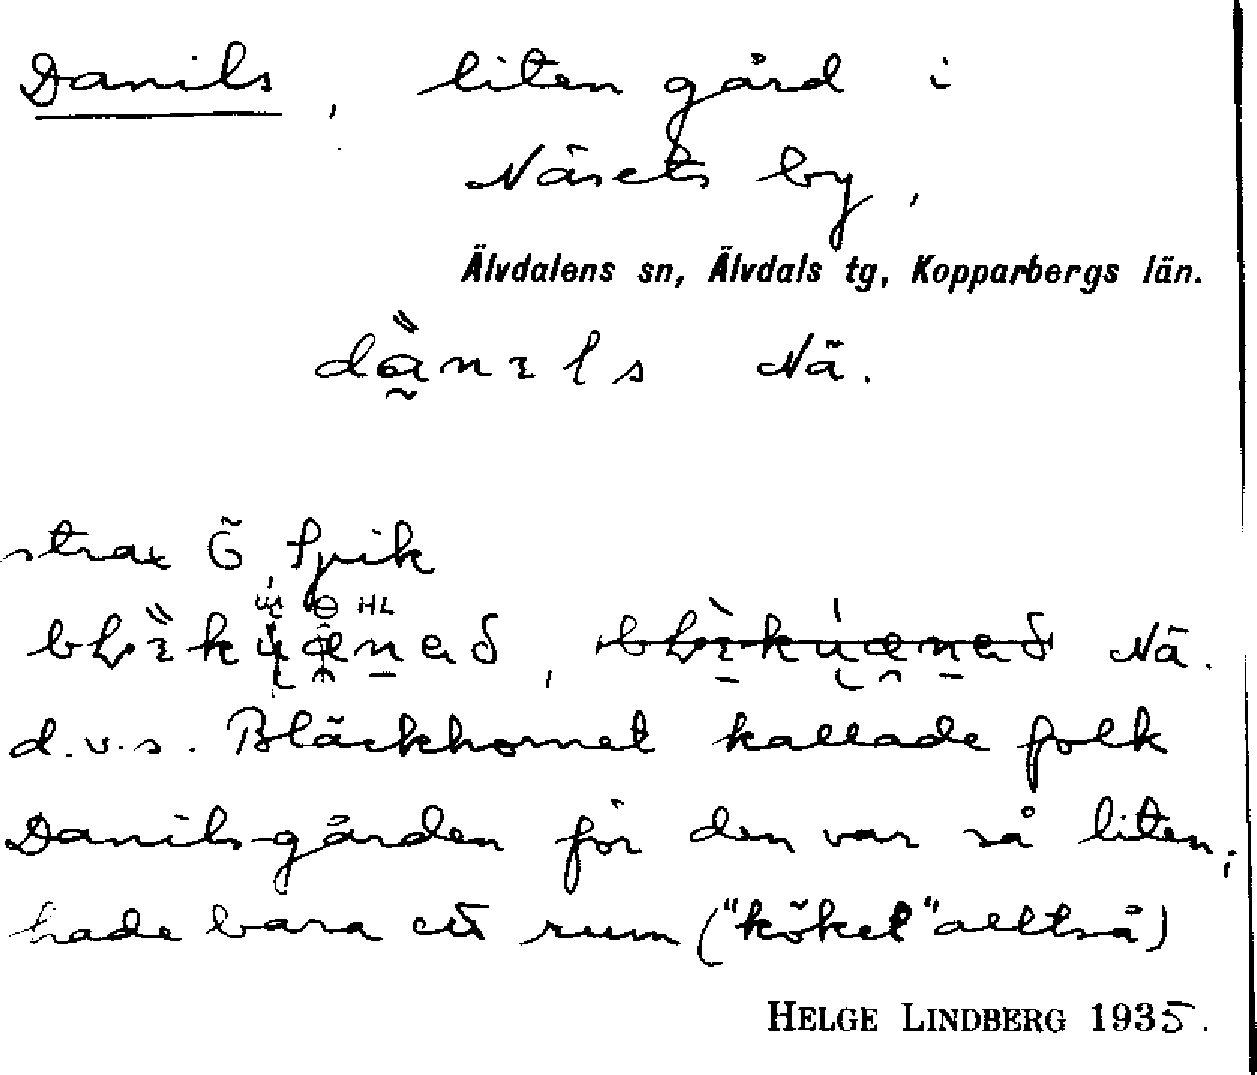 Danils, liten gård i
Näsets by,
Älvdalens sn, Älvdals tg, Kopparbergs län.
Nä.
strax Ö Spik
HL
Nä.
d.v.s. Bläckhornet kallade folk
Danils-gården för den var så liten;
hade bara ett rum ("köket" alltså)
HELGE LINDBERG 1935.